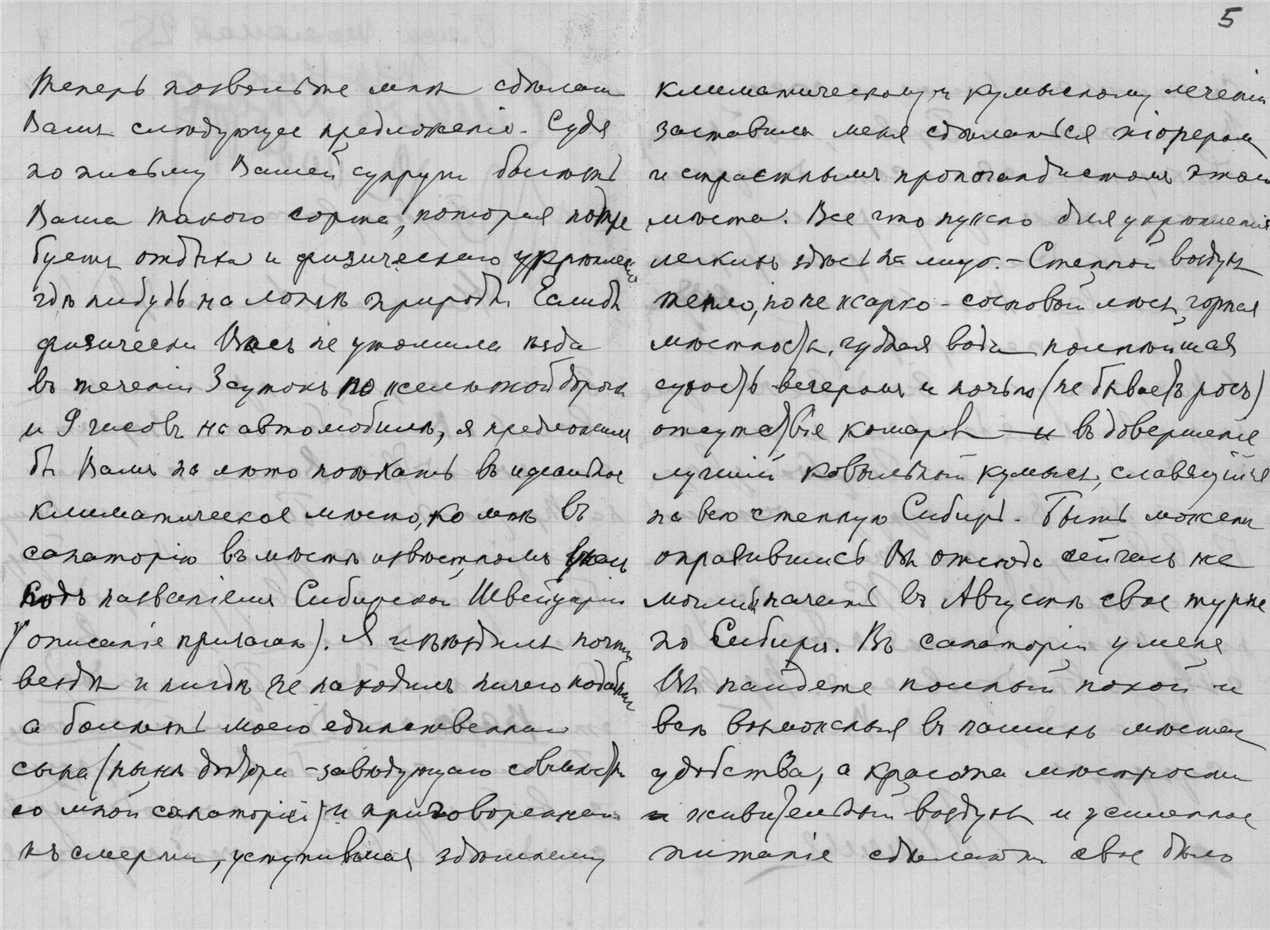 5
Теперь позвольте мнѣ сдѣлать
Вамъ слѣдующее предложеніе. Судя
по письму Вашей супруги болѣзнь
Ваша такого сорта, которая потре
буетъ отдыха и физическаго укрѣпленія
гдѣ нибудь на лонѣ природы. Еслибъ
физически Васъ не утомила ѣзда
въ теченіи 3 сутокъ по желѣзной дорогѣ
и 9 часовъ на автомобилѣ, я предложилъ
бы Вамъ на лѣто поѣхать въ идеальное
климатическое мѣсто, ко мнѣ въ
санаторію въ мѣстѣ извѣстномъ
подъ названіемъ Сибирской Швейцаріи
(описаніе прилагаю). Я изъѣздилъ почти
вездѣ и нигдѣ не находилъ ничего подобнаго
а болѣзнь моего единственнаго
сына (нынѣ доктора - завѣдующаго совмѣстно
со мной санаторіей) и приговореннаго
къ смерти, уступившая здѣшнему
климатическому и кумысному леченію
заставила меня сдѣлаться піонеромъ
и страстнымъ пропогандистомъ этого
мѣста. Все что нужно для укрѣпленія
легкихъ здѣсь на лицо. - Степной воздухъ
тепло, но не жарко - сосновый лѣсъ, горная
мѣстность, чудная вода полнѣйшая
сухость вечеромъ и ночью (не бываетъ росъ)
отсутствіе комаровъ и въ довершеніе
лучшій ковыльный кумысъ, славящійся
на всю степную Сибирь. Быть можетъ
оправившись Вы отсюда сейчасъ же
могли начать въ Августѣ свое турнэ
по Сибири. Въ санаторіи у меня
Вы найдете полный покой и
всѣ возможныя въ нашихъ мѣстахъ
удобства, а красота мѣстности
и живительный воздухъ и усиленное
питаніе сдѣлаютъ свое дѣло